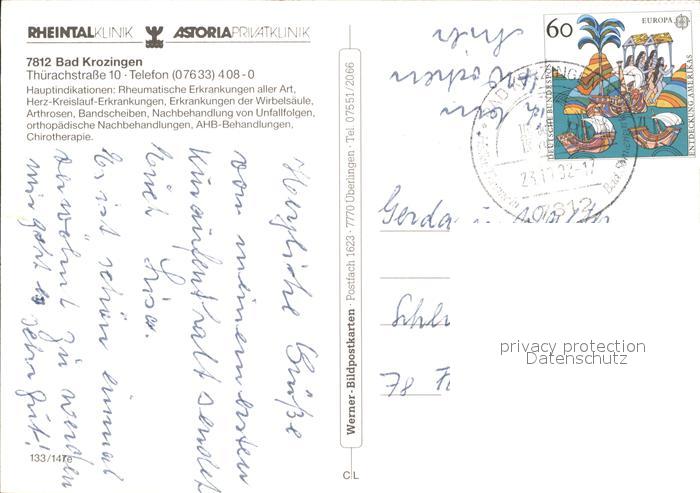 RHEINTALKLINIK ASTORIAPRIVATKLINIK
7812 Bad Krozingen
Thürachstraße 10 · Telefon (07633) 408-0
Hauptindikationen: Rheumatische Erkrankungen aller Art,
Herz-Kreislauf-Erkrankungen, Erkrankungen der Wirbelsäule,
Arthrosen, Bandscheiben, Nachbehandlung von Unfallfolgen,
orthopädische Nachbehandlungen, AHB-Behandlungen,
Chirotherapie.
Herzliche Grüße
von meinem ersten
Kuraufenthalt sendet
Euch Lisa.
Es ist schön einmal
verwöhnt zu werden
mir geht es sehr gut!
133/147e
Werner-Bildpostkarten · Postfach 1623 · 7770 Überlingen · Tel. 07551/2066
C L
60
EUROPA
DEUTSCHE BUNDESPOST
ENTDECKUNG AMERIKAS
BAD KROZINGEN
7812
Gerda
78
privacy protection
Datenschutz